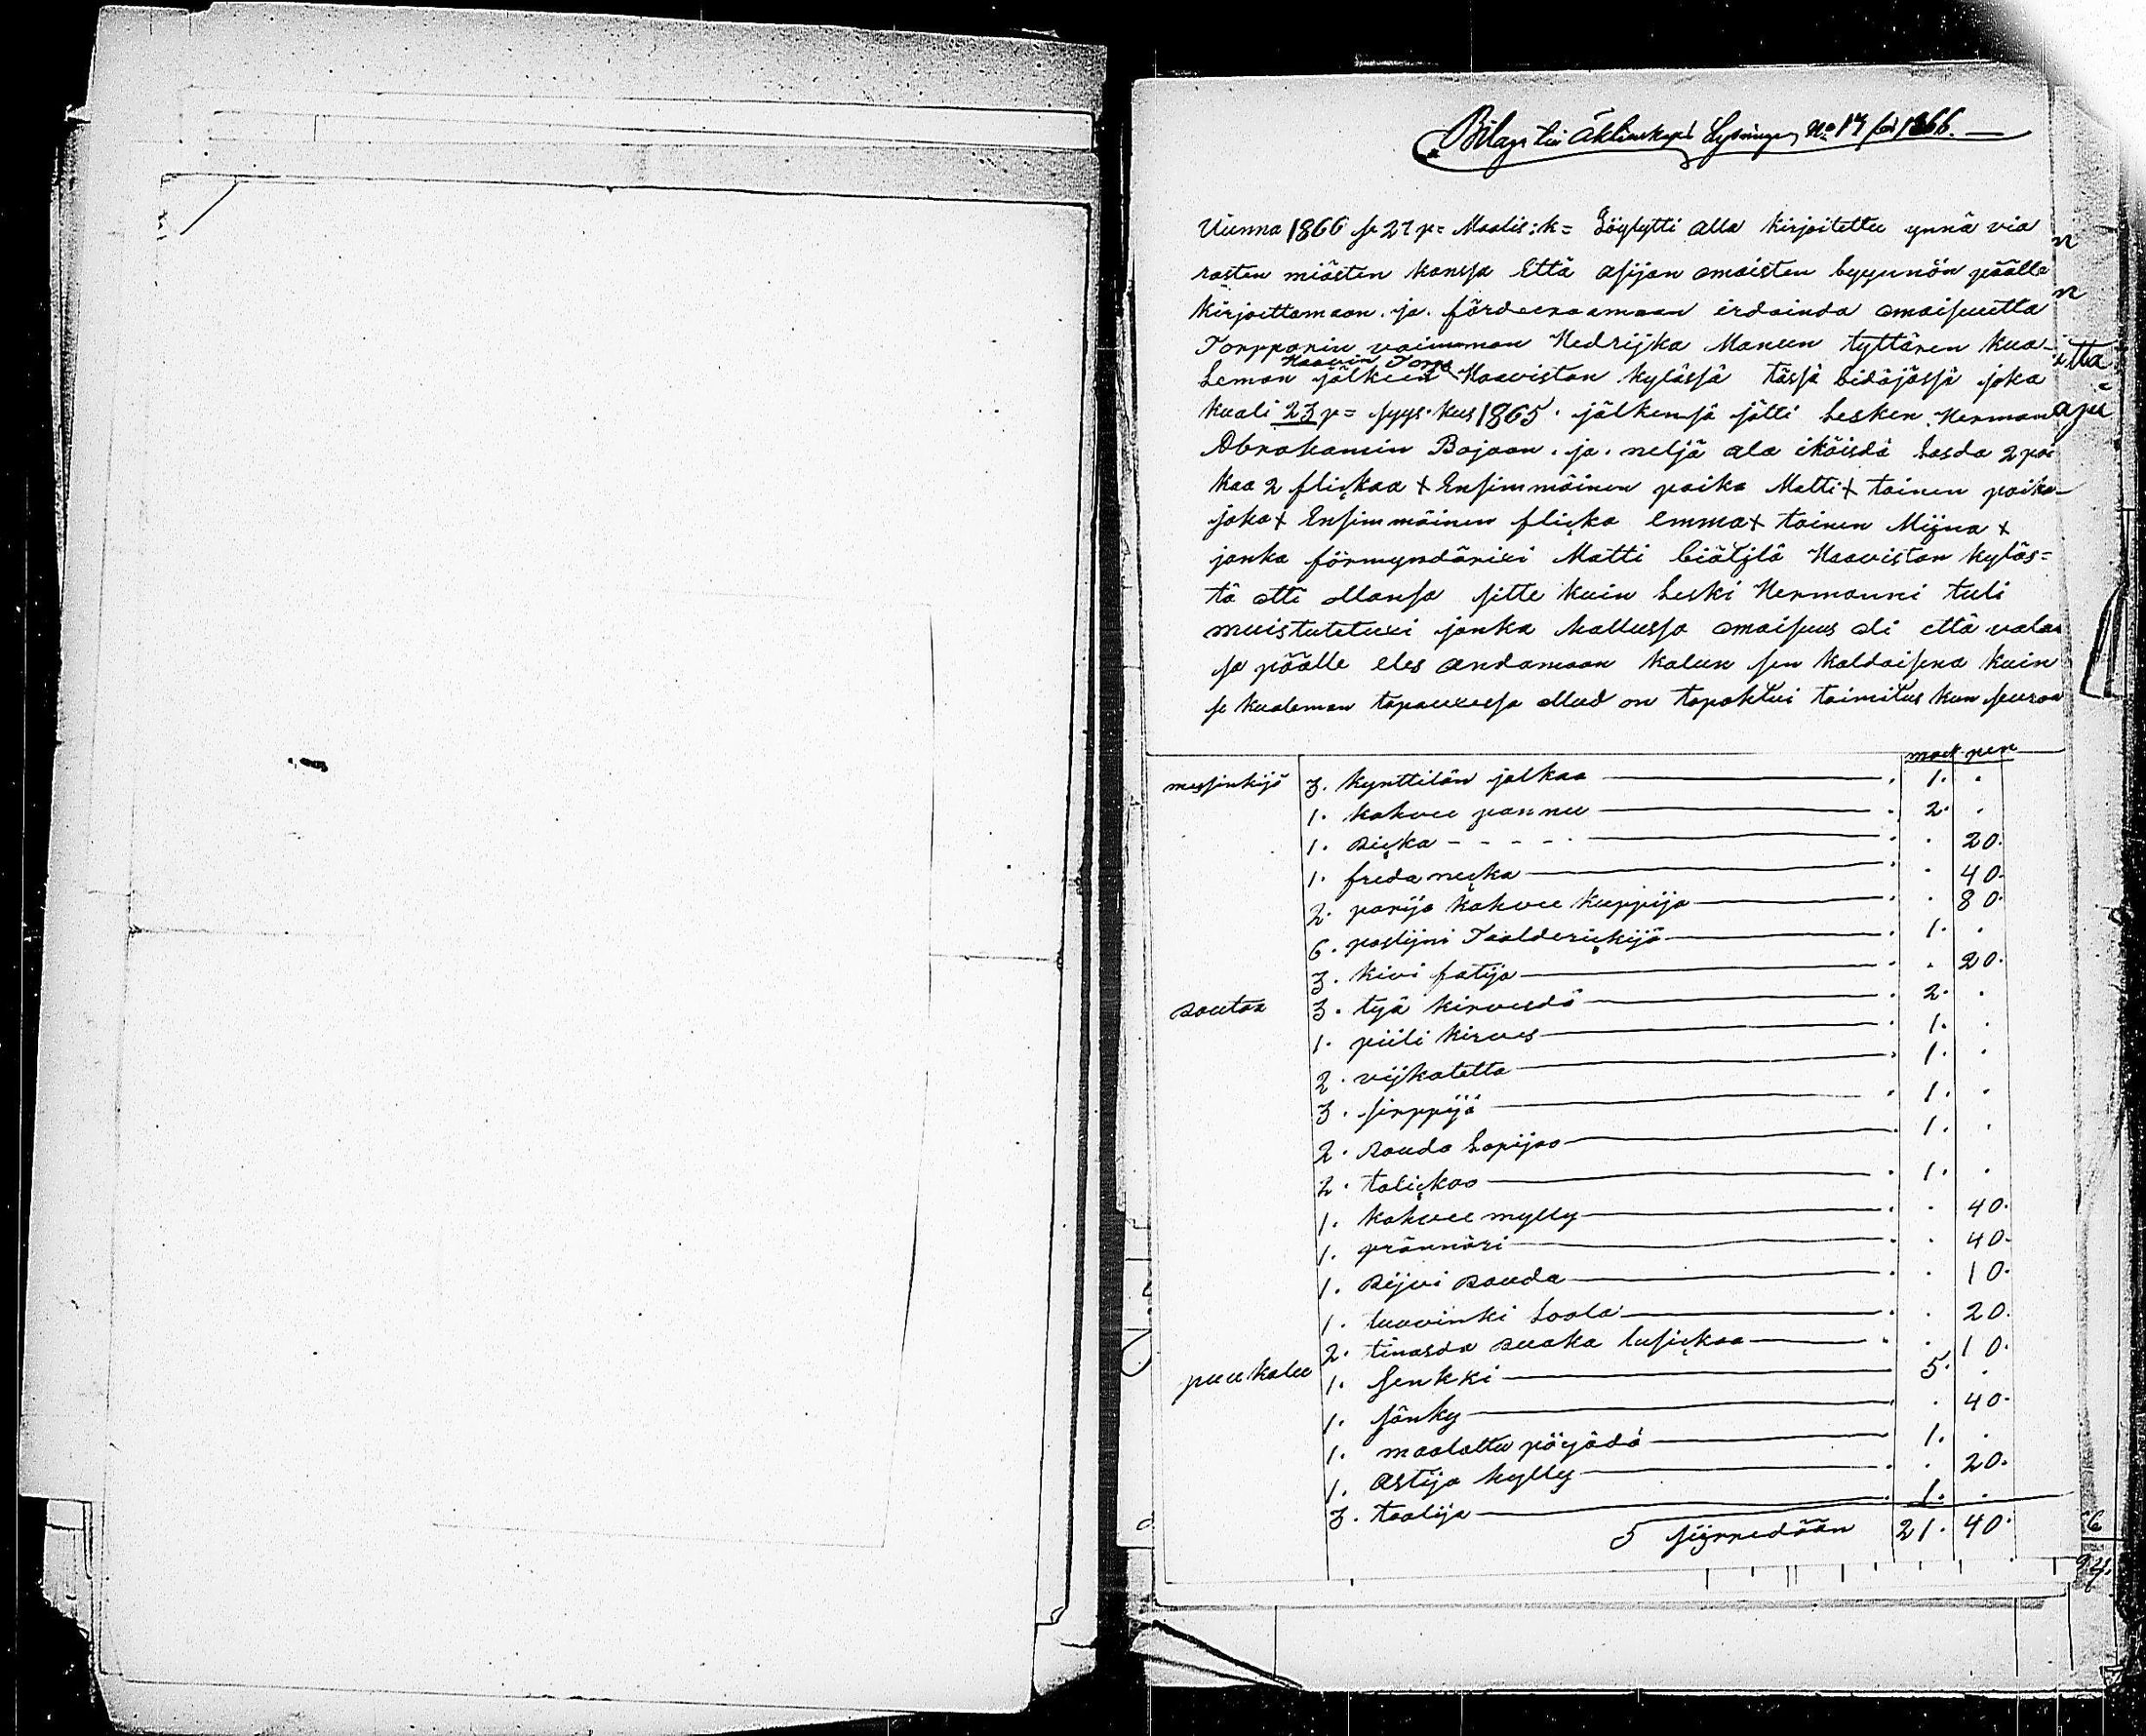 Bilaga till Äktenskaps Lysningen No 17 för 1866.
Vuonna 1866 se 27 p= Maalis:k= Löylytti alla kirjoitettu ynnä via
rasten miästen kanssa Että asijan omaisten byynnön päälle
kirjoittamaan. ja. förderaamaan irdainda omaisuutta
Torpparin vaimoman Hedrijka Manun tyttären kua-
Haavin Torpa
Leman jälkeen Haaviston kylässä tässä bidäjässä joka
kuali 23 p= syys-kus 1865. jälkensä jätti Lesken Herman
Abrahamin Bojaan. ja. neljä ala ikäisdä Lasda 2 poi
kaa 2 flickaa + Ensimmäinen poika Matti + toinen poika-
joka + Ensimmäinen flicka Emma + toinen Mijna +
jonka förmyndärixi Matti Haaviston kyläs=
tä otti ollansa sitte kuin Leski Hermanni tuli
muistutetuxi jonka hallussa omaisuus oli että valan
sa päälle eles andamaan kalun sen kaldaisena kuin
se kualeman tapauxessa ollud on tapahtui toimitus kun seuraa
mark pen
messinkijä 3. kynttilän jalkaa 1. .
1. kahvee pannu 2. .
1. sicka . 20.
1. freda necka . 40.
2. parija kahvee kuppija . 80.
6. postijni Taalderickijä 1. .
3. kivi fatija . 20.
rautaa 3. tyä kirvesdä 2. .
1. piili kirves 1. .
2. vijkatetta 1. .
3. sirppijä 1. .
2. rauda Lapijaa 1. .
2. talickaa 1. .
1. kahvee mylly . 40.
1. prännäri . 40.
1. rijvi rauda . 10.
1. Loola . 20.
2. tinasda ruaka lusickaa . 10.
puu kalu 1. senkki 5. .
1. sänky . 40.
1. maalattu pöyädä 1. .
1. Astija hylly . 20.
3. taalija 1. .
5 siyrredään 21. 40.